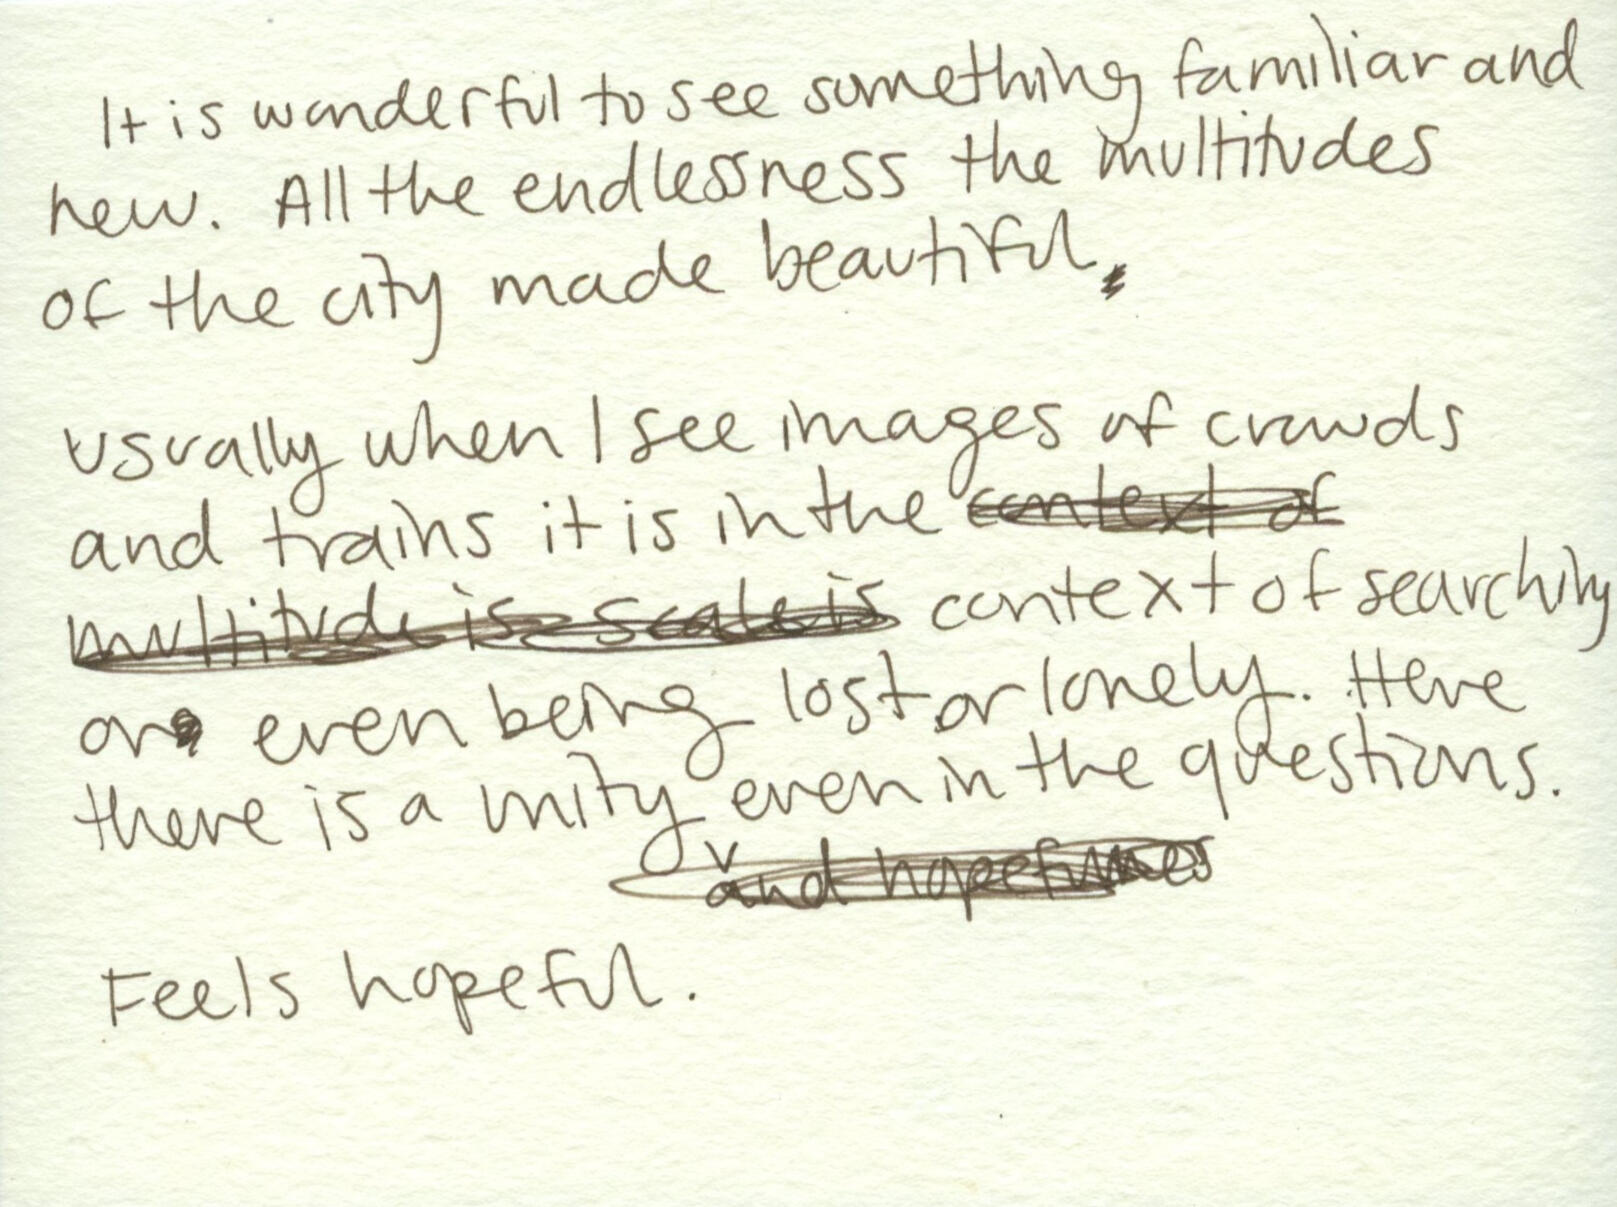 It is wonderful to see something familiar and
new. All the endlessness the multitudes
of the city made beautiful.
Usually when I see images of crowds
and trains it is in the context of
multitude is scale is context of searching
or even being lost or lonely. Here
there is a unity even in the questions.
and hopefulness
Feels hopeful.